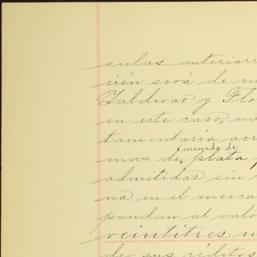 sulas anteriore
ción será de cu
Zaldivar y Flo
en este caso, en
tamentaria acr
moneda de
mas de plata
admitidas sin
na en el merca
pondan al valo
veintitres m
de sus réditos